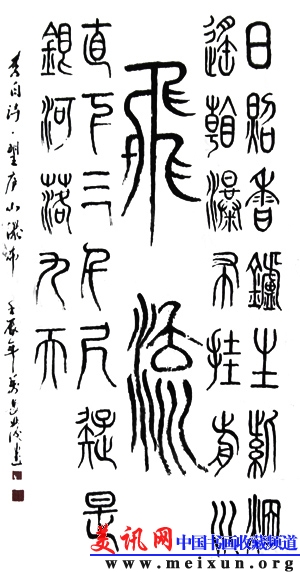 日照香鑪生紫烟
遙看瀑布挂前川
飛流
直下三千尺疑是
銀河落九天
李白诗·望庐山瀑布 壬辰年
美讯网 中国书画收藏频道
www.meixun.org